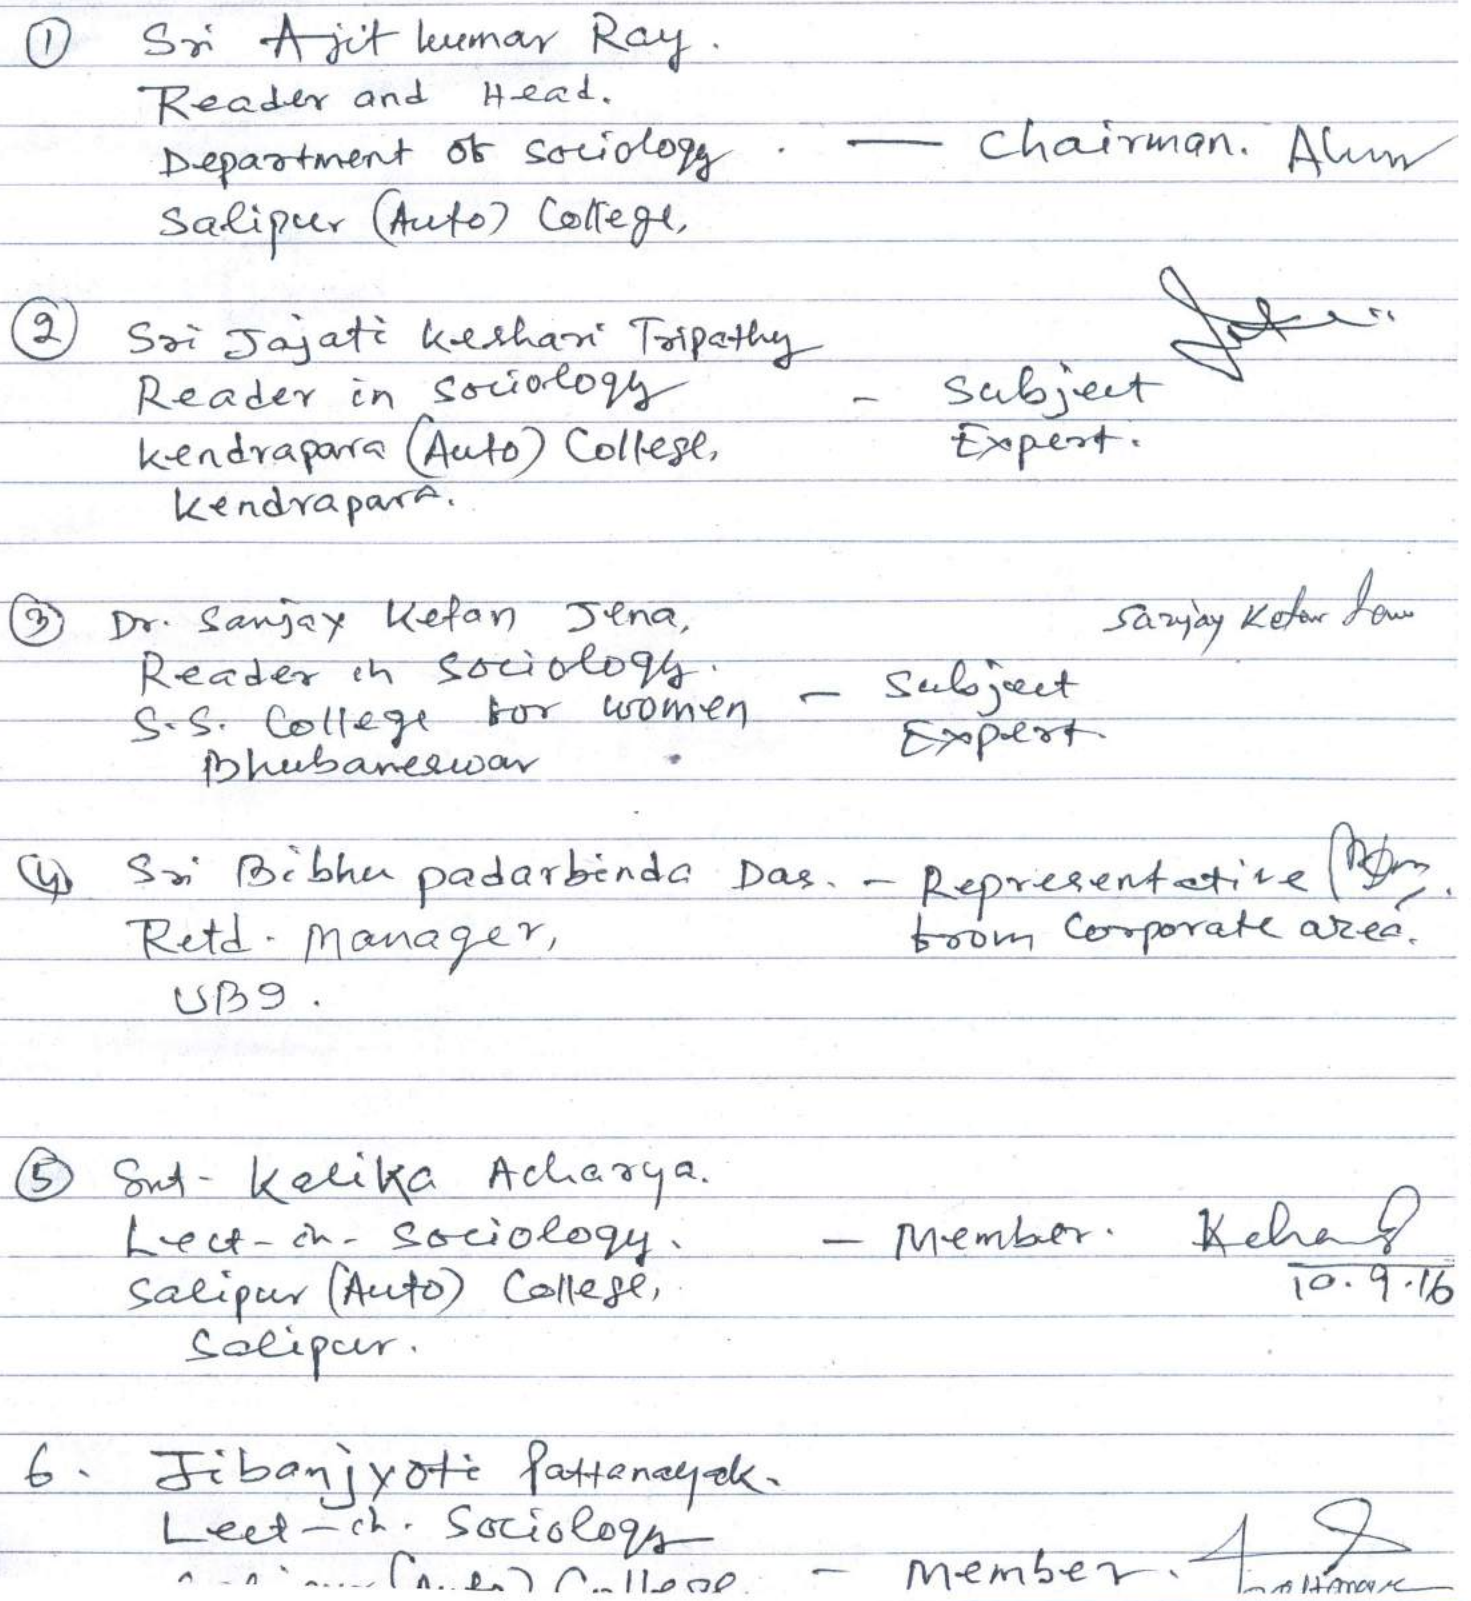 ① Sri Ajit kumar Ray.
Reader and Head.
Department of sociology. — Chairman.
Salipur (Auto) College,
② Sri Jajati Keshari Tripathy
Reader in Sociology - Subject
Kendrapara (Auto) College, Expert.
Kendrapara.
③ Dr. Sanjay Ketan Jena, Sanjay Ketan Jena
Reader in Sociology. — Subject
S.S. College for women Expert.
Bhubaneswar
④ Sri Bibhu padarbinda Das. - Representative
Retd. Manager, from Corporate area.
UBI.
⑤ Smt- Kalika Acharya.
Lect-in- Sociology. — Member.
Salipur (Auto) College, 10.9.16
Salipur.
6. Jibanjyoti Pattanayak.
Lect-in. Sociology
(Auto) College. - member.